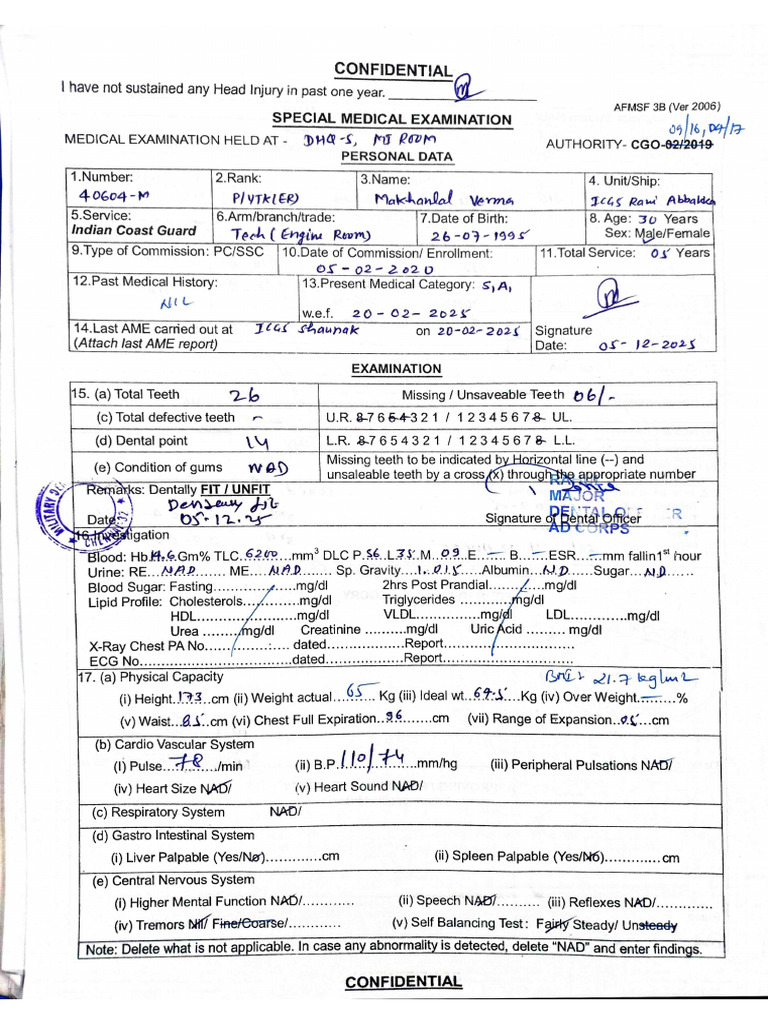 CONFIDENTIAL
I have not sustained any Head Injury in past one year. ____________
AFMSF 3B (Ver 2006)
SPECIAL MEDICAL EXAMINATION
09/16, 04/17
MEDICAL EXAMINATION HELD AT - DHQ-5, MI ROOM AUTHORITY- CGO-02/2019
PERSONAL DATA
1.Number: 2.Rank: 3.Name: 4. Unit/Ship:
40604-M P/VTK(ER) Makhanlal Verma ICGS Rani Abbakka
5.Service: 6.Arm/branch/trade: 7.Date of Birth: 8. Age: 30 Years
Indian Coast Guard Tech (Engine Room) 26-07-1995 Sex: Male/Female
9.Type of Commission: PC/SSC 10.Date of Commission/ Enrollment: 11.Total Service: 05 Years
05-02-2020
12.Past Medical History: 13.Present Medical Category: S1A1
NIL
w.e.f. 20-02-2025
14.Last AME carried out at ICGS Shaunak on 20-02-2025 Signature
(Attach last AME report) Date: 05-12-2025
EXAMINATION
15. (a) Total Teeth 26 Missing / Unsaveable Teeth 06/-
(c) Total defective teeth - U.R. 87654321 / 12345678 UL.
(d) Dental point 14 L.R. 87654321 / 12345678 L.L.
(e) Condition of gums NAD Missing teeth to be indicated by Horizontal line (--) and
unsaleable teeth by a cross (x) through the appropriate number
Remarks: Dentally FIT / UNFIT
MAJOR
Dentally fit
Date: 05.12.25 Signature of Dental Officer
DENTAL OFFICER
AD CORPS
MILITARY DE
CHENNAI-32
16.Investigation
Blood: Hb 14.6 Gm% TLC 6200 mm3 DLC P.56 L.35 M.09 E.- B.- ESR.- mm fallin1st hour
Urine: RE NAD ME NAD Sp. Gravity 1.015 Albumin ND Sugar ND
Blood Sugar: Fasting..................mg/dl 2hrs Post Prandial..................mg/dl
Lipid Profile: Cholesterols..................mg/dl Triglycerides ..................mg/dl
HDL..................mg/dl VLDL..................mg/dl LDL..................mg/dl
Urea .........mg/dl Creatinine ..........mg/dl Uric Acid ......... mg/dl
X-Ray Chest PA No.................. dated..................Report..................
ECG No..................dated..................Report..................
17. (a) Physical Capacity BMI 21.7 kg/m2
(i) Height 173 cm (ii) Weight actual 65 Kg (iii) Ideal wt. 69.5 Kg (iv) Over Weight - %
(v) Waist 85 cm (vi) Chest Full Expiration 96 cm (vii) Range of Expansion 05 cm
(b) Cardio Vascular System
(I) Pulse 78 /min (ii) B.P. 110/74 mm/hg (iii) Peripheral Pulsations NAD/
(iv) Heart Size NAD/ (v) Heart Sound NAD/
(c) Respiratory System NAD/
(d) Gastro Intestinal System
(i) Liver Palpable (Yes/No)..............cm (ii) Spleen Palpable (Yes/No)..............cm
(e) Central Nervous System
(i) Higher Mental Function NAD/............ (ii) Speech NAD/.......... (iii) Reflexes NAD/............
(iv) Tremors Nil/ Fine/Coarse/............ (v) Self Balancing Test: Fairly Steady/ Unsteady
Note: Delete what is not applicable. In case any abnormality is detected, delete "NAD" and enter findings.
CONFIDENTIAL